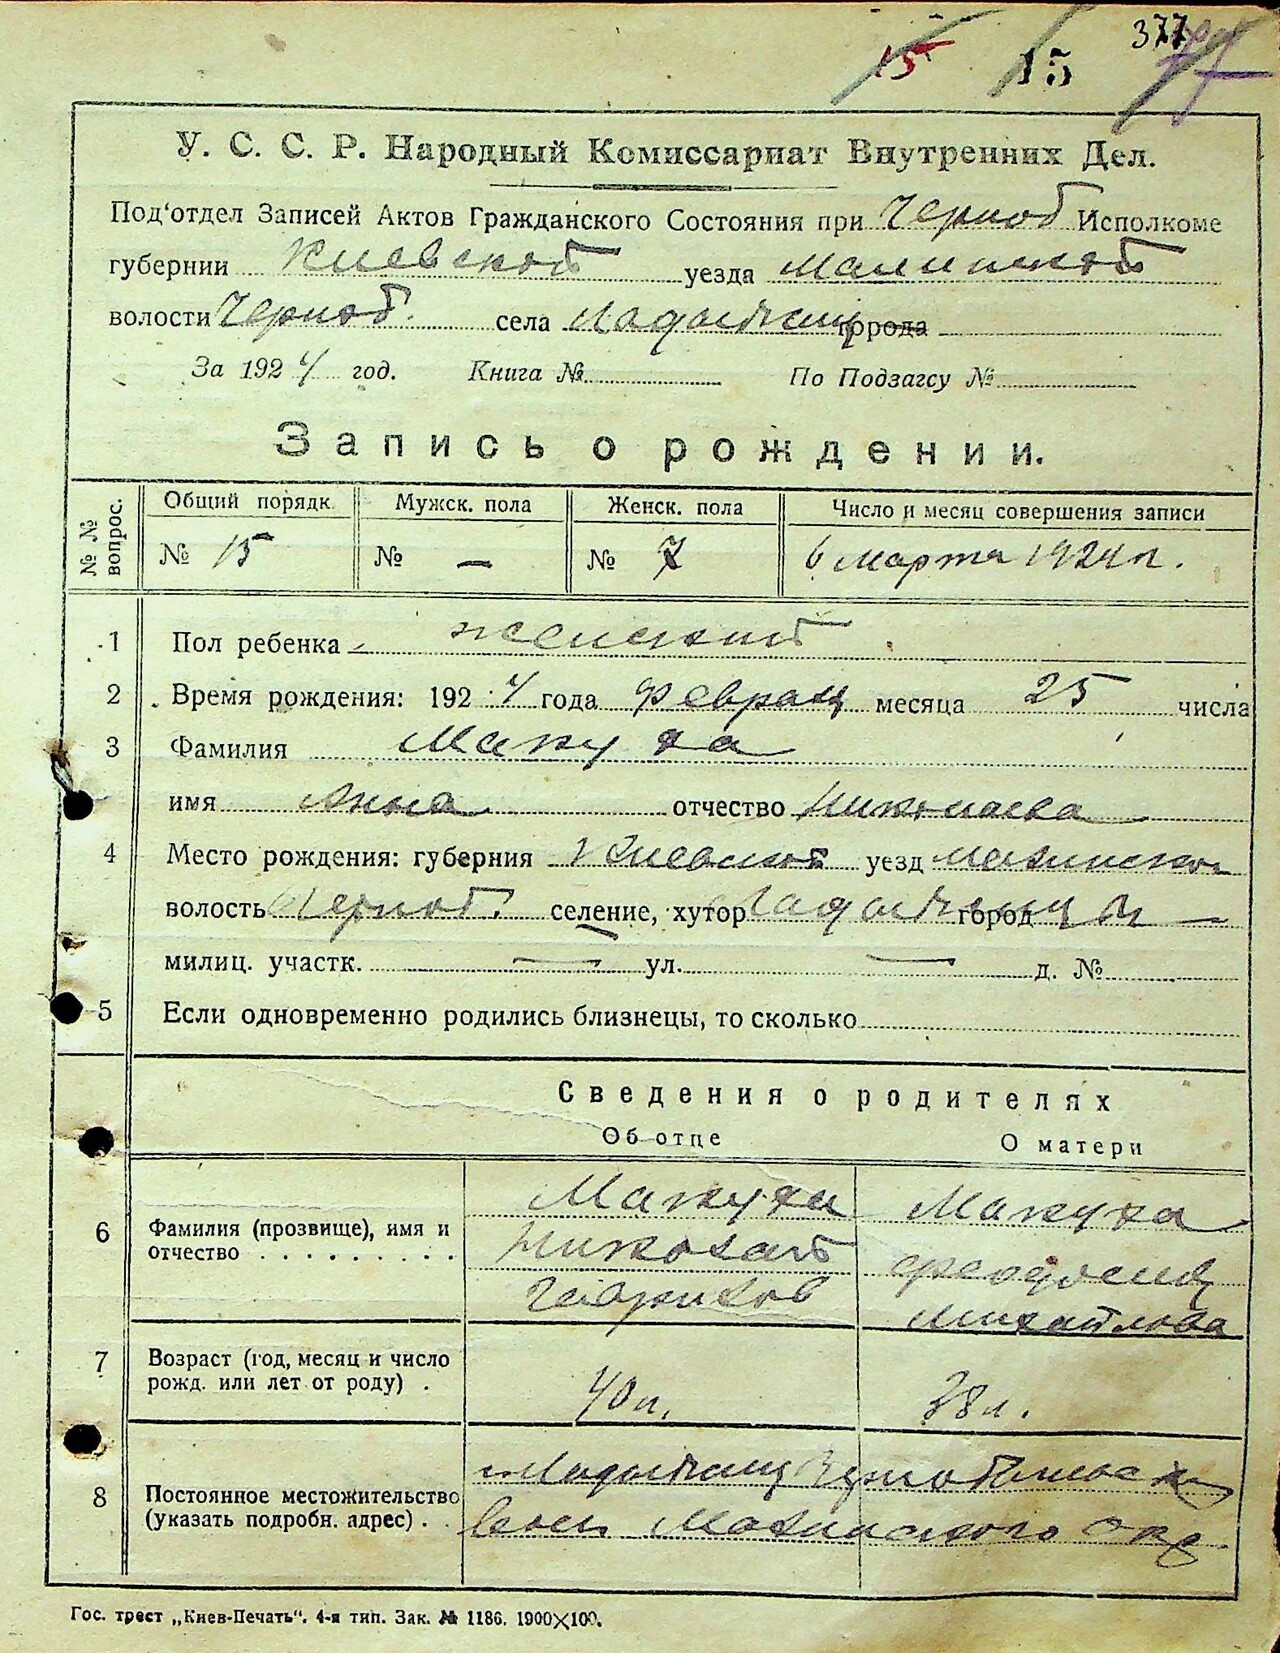 15 15 377
У. С. С. Р. Народный Комиссариат Внутренних Дел.
Под'отдел Записей Актов Гражданского Состояния при Черноб Исполкоме
губернии Киевской уезда Малинской
волости Черноб. села Ладыжичи города
За 1924 год. Книга № По Подзагсу №
Запись о рождении.
№ № вопрос. Общий порядк. Мужск. пола Женск. пола Число и месяц совершения записи
№ 15 № — № 7 6 марта 1924 г.
1 Пол ребенка женский
2 Время рождения: 1924 года февраля месяца 25 числа
3 Фамилия Макуха
имя Анна отчество Николаева
4 Место рождения: губерния Киевской уезд Малинской
волость Черноб. селение, хутор Ладыжичи город —
милиц. участк. — ул. — д. №
5 Если одновременно родились близнецы, то сколько
Сведения о родителях
Об отце О матери
Макуха Макуха
6 Фамилия (прозвище), имя и Николай Феодосия
отчество Гаврилов Михайлова
7 Возраст (год, месяц и число
рожд. или лет от роду) . 40 л. 38 л.
Ладыжичи
8 Постоянное местожительство
(указать подробн. адрес) . вол. Малинского окр.
Гос. трест „Киев-Печать“. 4-я тип. Зак. № 1186. 1900×100.